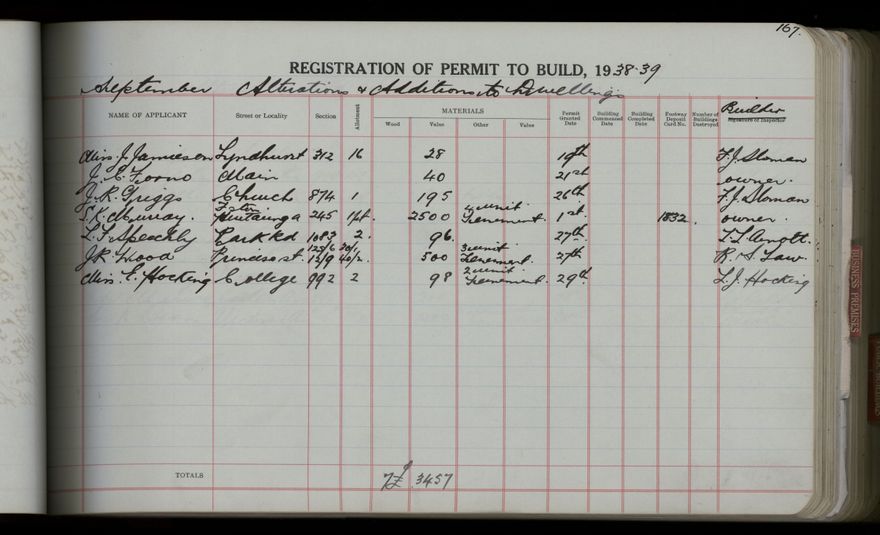 167.
REGISTRATION OF PERMIT TO BUILD, 1938-39
September Alterations & Additions to Dwellings
NAME OF APPLICANT Street or Locality Section Allotment MATERIALS Wood Value Other Value Permit Granted Date Building Commenced Date Building Completed Date Footway Deposit Card No. Number of Buildings Destroyed Builder Signature of Inspector
Miss. J. Jamieson Lyndhurst 312 16 28 19th F. J. Sloman
J. E. Main 40 21st owner.
J. R. Griggs Church 874 1 195 26th F. J. Sloman
S. K. Murray. 245 2500 4 unit Tenement 1st. 1832. owner
Park Rd 1083 2. 96. 27th L. L.
J R Wood Princes st. 500 3 unit Tenement. 27th R. S. Law.
Miss. E. Hocking College 992 2 98 2 unit Tenement. 29th L. J. Hocking
TOTALS 7 3457
BUSINESS PREMISES